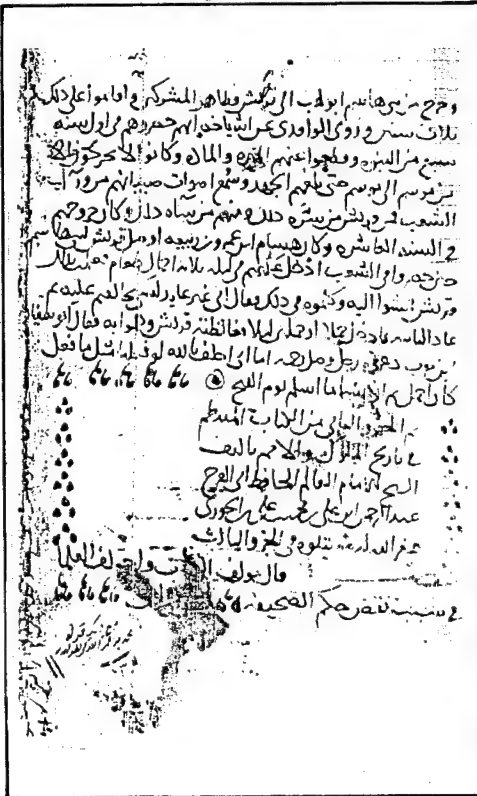 وخرج من بني هاشم ابو لهب الى قريش فظاهر المشركين واقاموا على ذلك
ثلاث سنين وروى الواقدي عن اشياخه انهم حصروهم في اول سنة
سبع من النبوة وقطعوا عنهم الميرة والمادة وكانوا لا يخرجون الا
من موسم الى موسم حتى بلغهم الجهد وسمع اصوات صبيانهم من وراء
الشعب فمن قريش من سره ذلك ومنهم من ساءه ذلك وكان خروجهم
في السنة العاشرة وكان هشام بن عمرو بن ربيعة اوصل قريش لبني هاشم
حين حصروا في الشعب ادخل عليهم في ليلة ثلاثة احمال طعام فعلمت بذلك
قريش فمشوا اليه وكلموه في ذلك فقال اني غير عائد لشيء خالفكم عليه ثم
عاد الثانية فادخل حملا او حملين ليلا فغالظته قريش وهموا به فقال ابو سفيان
بن حرب دعوه رجل وصل رحمه اما اني احلف بالله لو فعلنا مثل ما فعل
كان اجمل ثم ان هشاما اسلم يوم الفتح
تم الجزو الثاني من الكتاب المنتظم
في تاريخ الملوك والامم تاليف
الشيخ الامام العالم الحافظ ابي الفرج
عبد الرحمن ابن علي بن محمد بن علي بن الجوزي
غفر الله له يتلوه في الجزو الثالث
قال مولف الكتاب واختلف العلما
في سبب نقض حكم الصحيفة